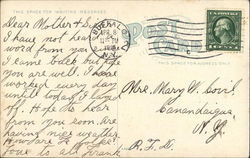 THIS SPACE FOR WRITING MESSAGES
Dear Mother &
I have not heard
word from you
I came back but hope
you are well. I have
worked every day
until today I
off. Hope to hear
from you soon. Are
having nice weather
How are
love to all Frank
APR 8
N.Y.
Post
THIS SPACE FOR ADDRESS ONLY
Mrs. Mary W.
Canandaigua
N. Y.
R. F. D.